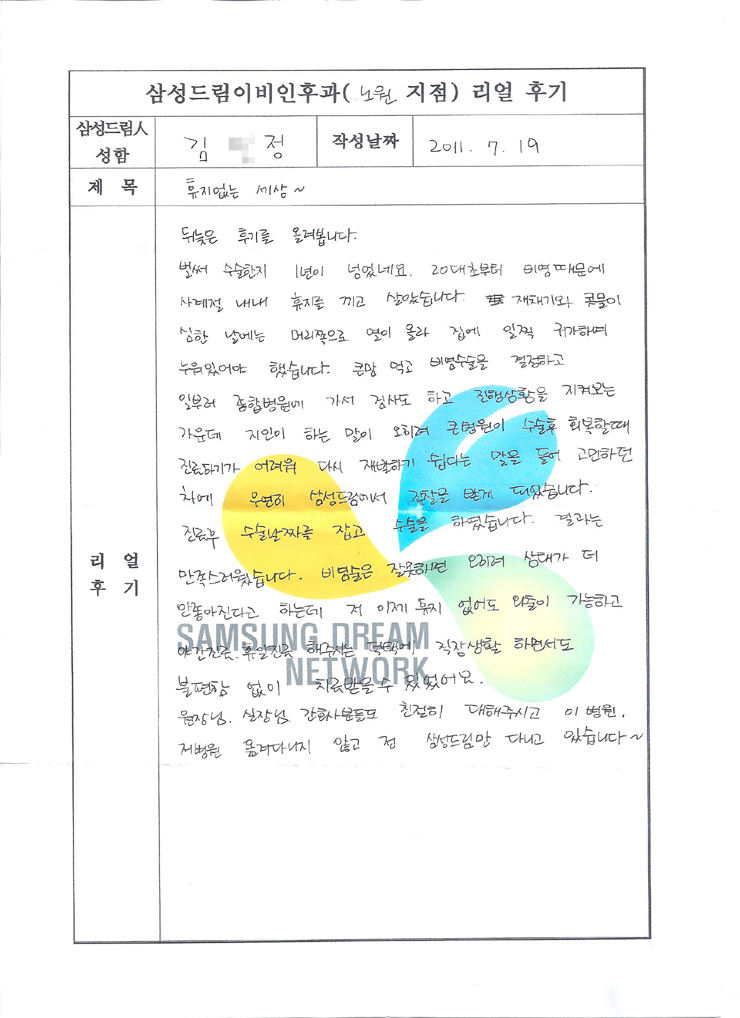 삼성드림이비인후과( 노원 지점) 리얼 후기
삼성드림人 성함
김 정
작성날짜
2011. 7. 19
제 목
휴지없는 세상~
리 얼 후 기
뒤늦은 후기를 올려봅니다.
벌써 수술한지 1년이 넘었네요. 20대초부터 비염때문에
사계절 내내 휴지를 끼고 살았습니다. 재채기와 콧물이
심한 날에는 머리쪽으로 열이 몰라 집에 일찍 귀가하여
누워있어야 했습니다. 큰맘 먹고 비염수술을 결정하고
일부러 종합병원에 가서 검사도 하고 진행상황을 지켜보는
가운데 지인이 하는 말이 오히려 큰병원이 수술후 회복할때
진료하기가 어려워 다시 재발하기 쉽다는 말을 들어 고민하던
차에 우연히 삼성드림에서 진찰을 받게 되었습니다.
진료후 수술날짜를 잡고 수술을 하였습니다. 결과는
만족스러웠습니다. 비염술은 잘못하면 오히려 상태가 더
안좋아진다고 하는데 저 이제 휴지 없어도 외출이 가능하고
야간진료, 휴일진료 해주시는 덕택에 직장생활 하면서도
불편함 없이 치료받을수 있었어요.
원장님, 실장님, 간호사분들도 친절히 대해주시고 이 병원,
저병원 옮겨다니지 않고 전 삼성드림만 다니고 있습니다~
SAMSUNG DREAM
NETWORK